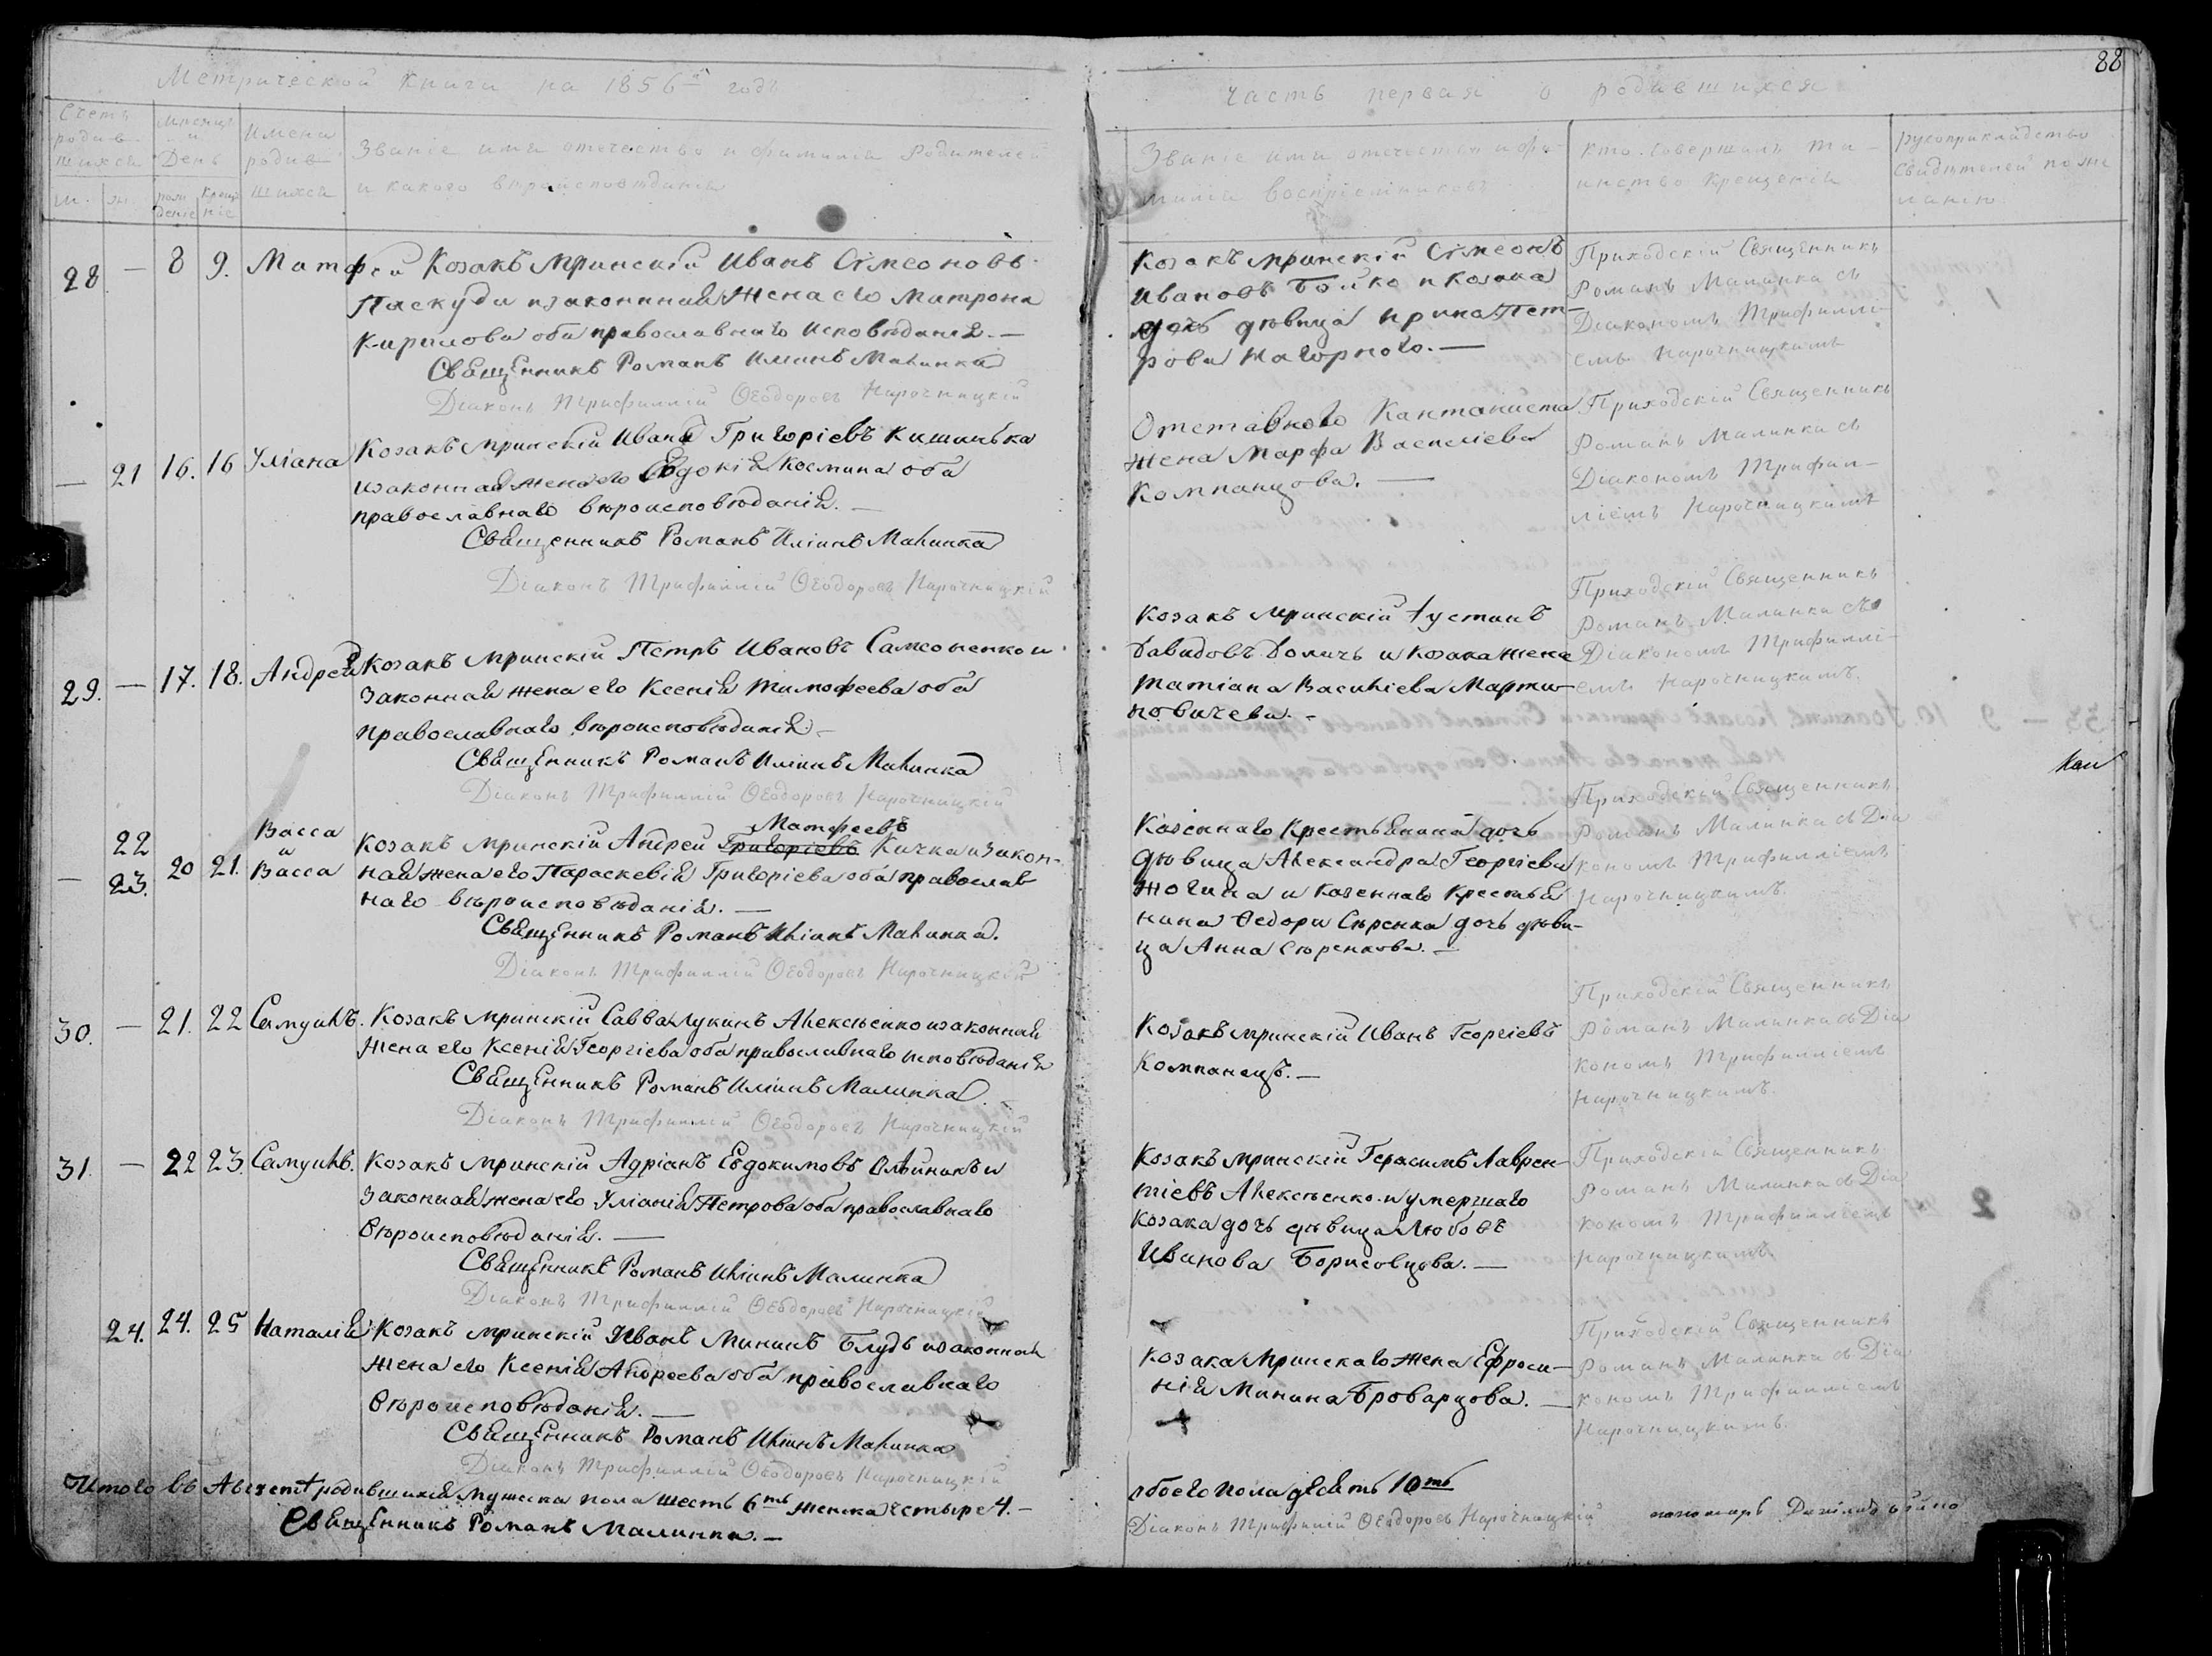 Метрической Книги на 1856й годъ
Часть первая о родившихся
88
Счетъ родившихся
м. ж.
Мѣсяцъ и День
рождение крещение
Имена родившихся
Званіе имя отечество и фамиліи Родителей
и какого вѣроисповѣданія
Званіе имя отечество и фамиліи Воспріемниковъ
Кто совершалъ таинство Крещенія
Рукоприкладство свидѣтелей по желанію
28 — 8 9. Матфей Козакъ Мринскій Иванъ Сѵмеоновъ
Паскуда и законная жена его Матрона
Кирилова оба православнаго исповѣданія. —
Священникъ Романъ Иліинъ Малинка
Діаконъ Трифиллій Ѳеодоровъ Нарочницкій
Козакъ Мринскій Сѵмеонъ
Ивановъ Бойко и Козака
дочь дѣвица Ирина Пет-
рова Нагорного. —
Приходскій Священникъ
Романъ Малинка съ
Діакономъ Трифиллі-
емъ Нарочницкимъ
— 21 16. 16 Уліана Козакъ Мринскій Иванъ Григоріевъ Кишинька
и законная жена его Евдокія Космина оба
православнаго вѣроисповѣданія. —
Священникъ Романъ Иліинъ Малинка
Діаконъ Трифиллій Ѳеодоровъ Нарочницкій
Отставного Кантаниста
жена Марфа Василіева
Компанцова. —
Приходскій Священникъ
Романъ Малинка съ
Діакономъ Трифил-
ліемъ Нарочницкимъ
29. — 17. 18. Андрей Козакъ Мринскій Петръ Ивановъ Самсоненко и
законная жена его Ксенія Тимофеева оба
православнаго вѣроисповѣданія —
Священникъ Романъ Иліинъ Малинка
Діаконъ Трифиллій Ѳеодоровъ Нарочницкій
Козакъ Мринскій Іустинъ
Давидовъ и Козака жена
Татіана Василіева Марти-
новичева. —
Приходскій Священникъ
Романъ Малинка съ
Діакономъ Трифиллі-
емъ Нарочницкимъ.
— 22 23. 20 21. Васса и Васса
Матфеевъ
Козакъ Мринскій Андрей Григоріевъ Кичка и закон-
ная жена его Параскевія Григоріева оба православ
наго вѣроисповѣданія. —
Священникъ Романъ Иліинъ Малинка.
Діаконъ Трифиллій Ѳеодоровъ Нарочницкій
Казеннаго Крестьянина дочь
дѣвица Александра Георгіева
и Казеннаго Крестья
нина Ѳедора Сѣренка дочь дѣви-
ца Анна Сѣренкова. —
Приходскій Священникъ
Романъ Малинка съ Діа
кономъ Трифилліемъ
Нарочницкимъ.
30. — 21. 22 Самуилъ. Козакъ Мринскій Савва Лукинъ Алексѣенко и законная
жена его Ксенія Георгіева оба православнаго исповѣданія
Священникъ Романъ Иліинъ Малинка. —
Діаконъ Трифиллій Ѳеодоровъ Нарочницкій
Козакъ Мринскій Иванъ Георгіевъ
Компанецъ. —
Приходскій Священникъ
Романъ Малинка съ Діа
кономъ Трифилліемъ
Нарочницкимъ.
31. — 22 23. Самуилъ. Козакъ Мринскій Адріанъ Евдокимовъ Олѣйникъ и
законная жена его Уліанія Петрова оба православнаго
вѣроисповѣданія. —
Священникъ Романъ Иліинъ Малинка
Діаконъ Трифиллій Ѳеодоровъ Нарочницкій
Козакъ Мринскій Герасимъ Лаврен-
тіевъ Алексѣенко и умершаго
козака дочь дѣвица Любовь
Иванова Борисовцова. —
Приходскій Священникъ
Романъ Малинка съ Діа
кономъ Трифилліемъ
Нарочницкимъ.
24. 24. 25 Наталія Козакъ Мринскій Иванъ Мининъ Блудъ и законная
жена его Ксенія Андреева оба православнаго
вѣроисповѣданія. —
Священникъ Романъ Иліинъ Малинка
Діаконъ Трифиллій Ѳеодоровъ Нарочницкій
Козака Мринскаго жена Ефроси-
нія Минина Броварцова. —
Приходскій Священникъ
Романъ Малинка съ Діа
кономъ Трифилліемъ
Нарочницкимъ.
Итого въ Августѣ родившихся мужеска пола шесть 6ть женска четыре 4. —
обоего пола десять 10ть
Священникъ Романъ Малинка. —
Діаконъ Трифилій Ѳеодоровъ Нарочницкій
пономарь